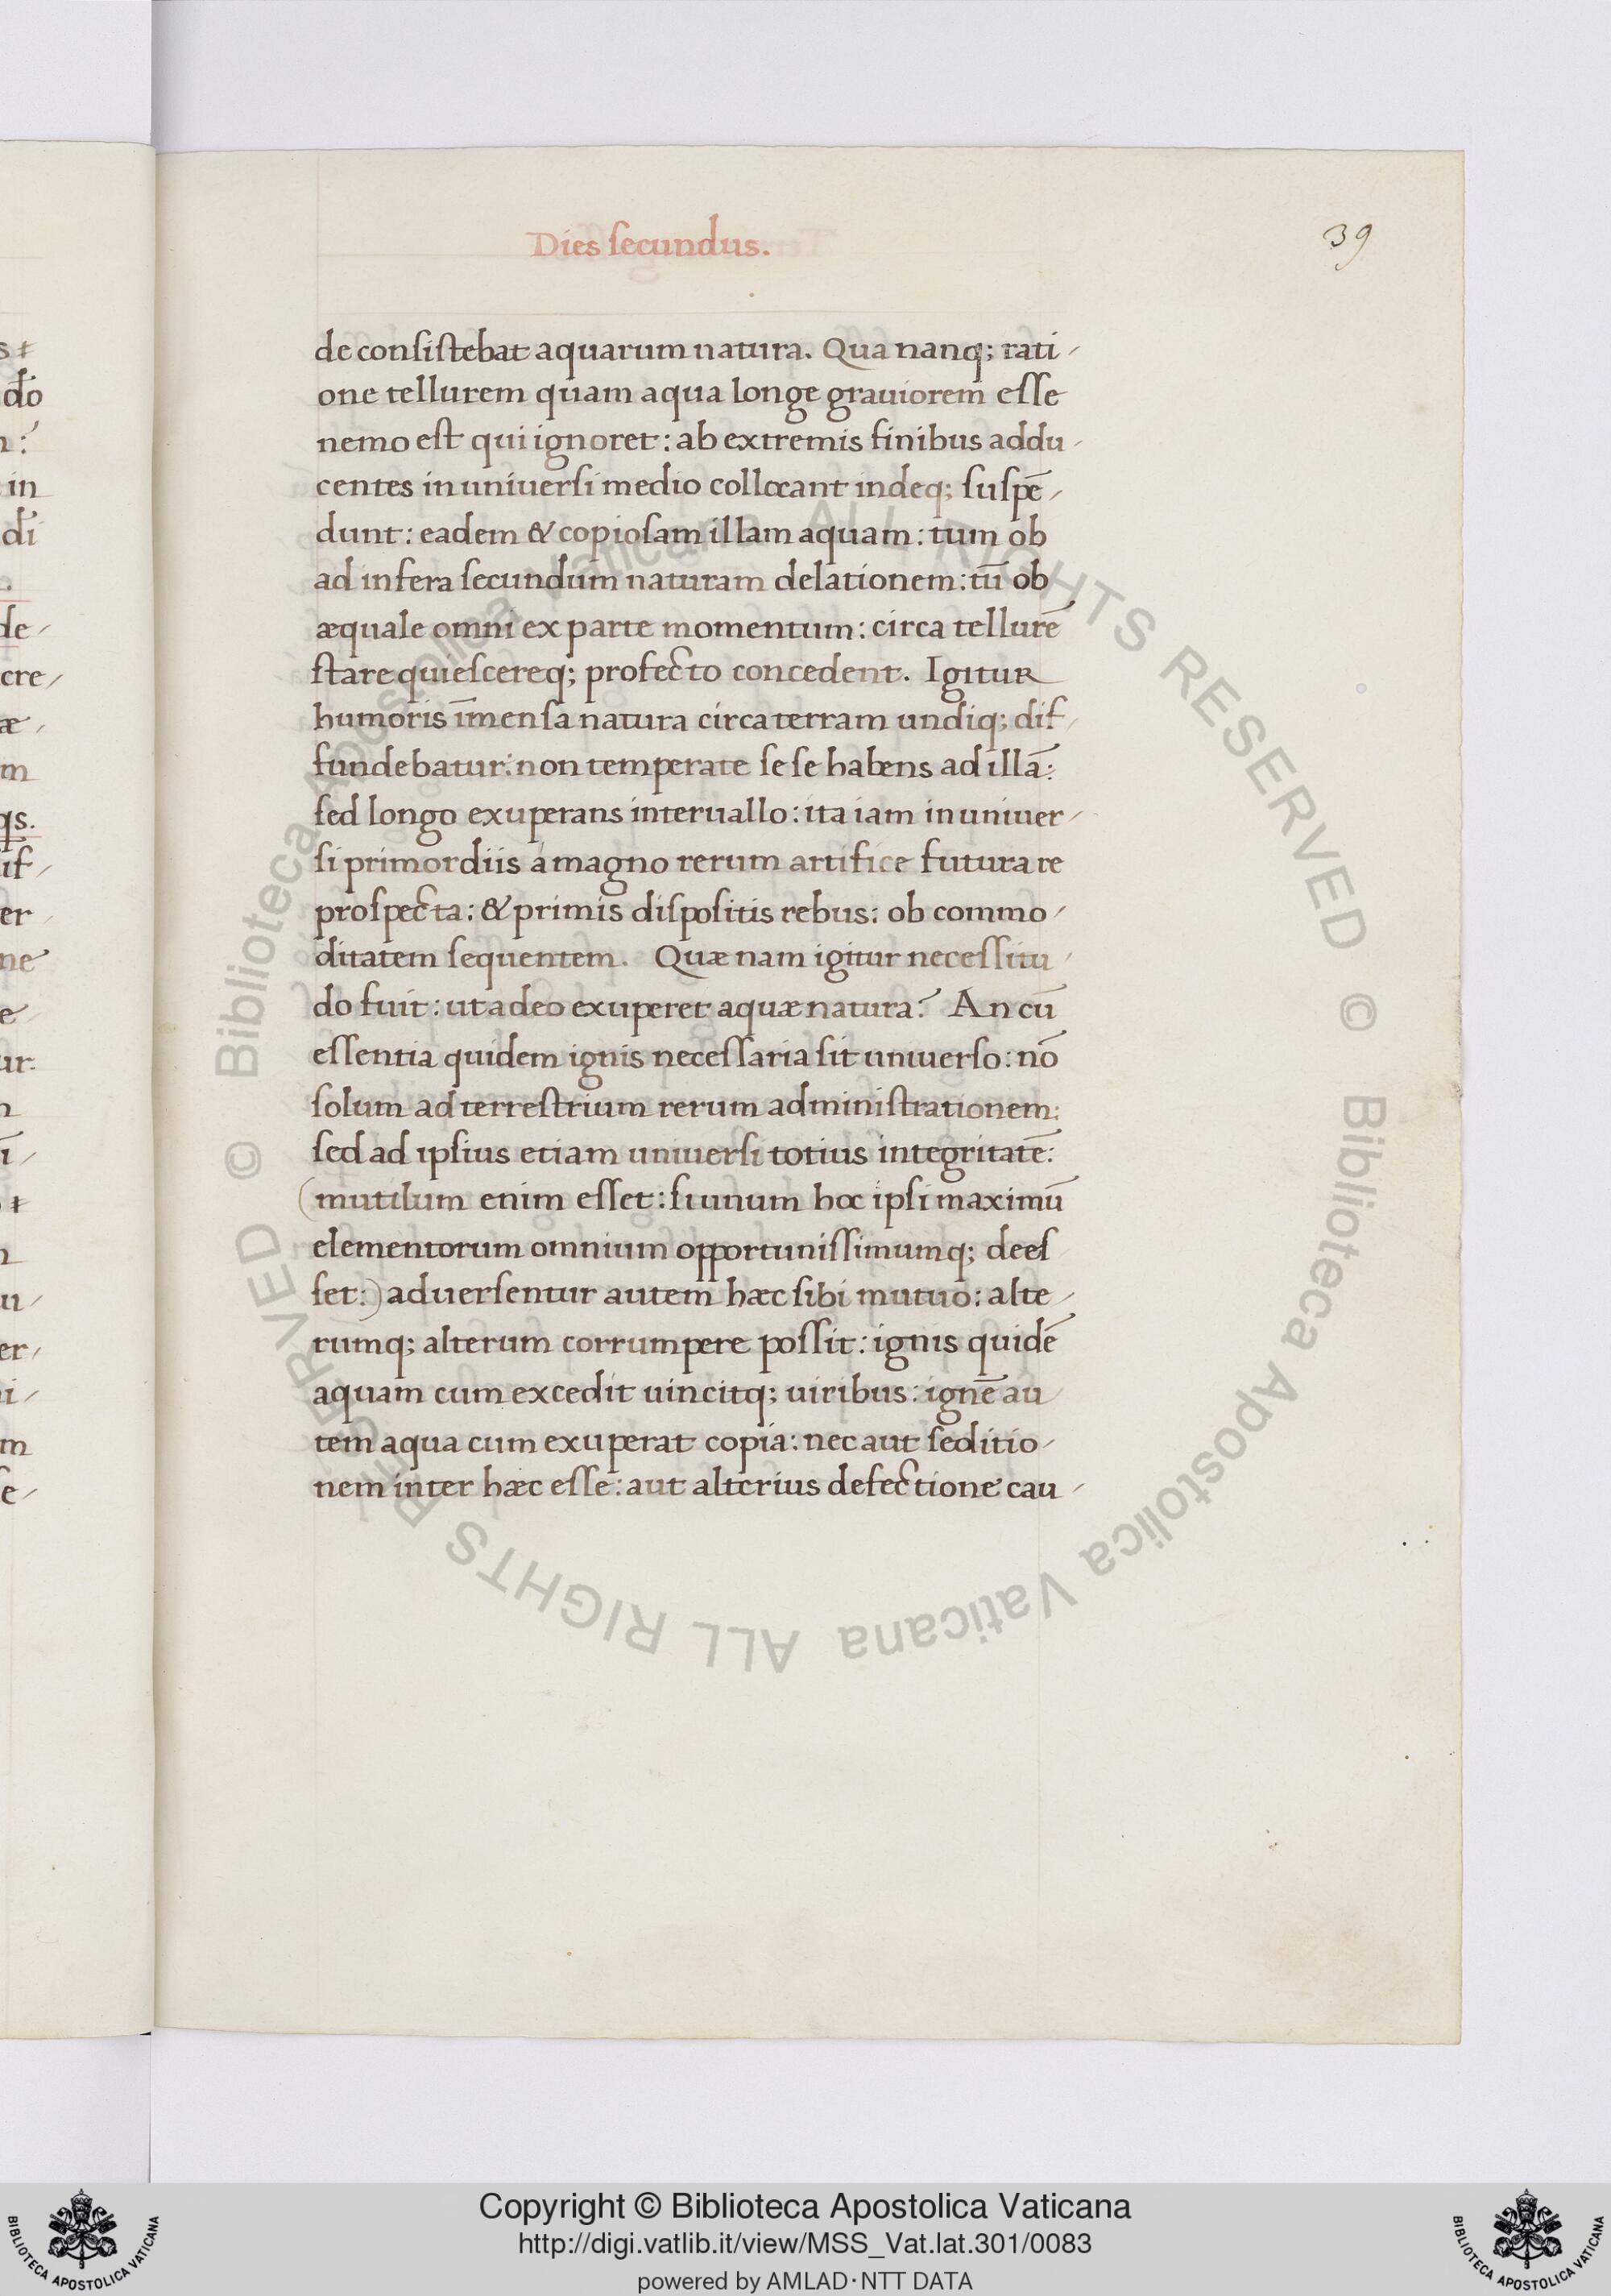 Dies secundus.
39
de consistebat aquarum natura. Qua nanq; rati-
one tellurem quam aqua longe grauiorem esse
nemo est qui ignoret: ab extremis finibus addu-
centes in uniuersi medio collocant indeq; suspē-
dunt: eadem & copiosam illam aquam: tum ob
ad infera secundum naturam delationem: tū ob
æquale omni ex parte momentum: circa tellurē
stare quiescereq; profecto concedent. Igitur
humoris īmensa natura circa terram undiq; dif-
fundebatur: non temperate sese habens ad illā:
sed longo exuperans interuallo: ita iam in uniuer-
si primordiis á magno rerum artifice futura re
prospecta: & primis dispositis rebus: ob commo-
ditatem sequentem. Quæ nam igitur necessitu-
do fuit: ut adeo exuperet aquæ natura? An cū
essentia quidem ignis necessaria sit uniuerso: nō
solum ad terrestrium rerum administrationem:
sed ad ipsius etiam uniuersi totius integritatē:
(mutilum enim esset: si unum hoc ipsi maximū
elementorum omnium opportunissimumq; dees
set:) aduersentur autem hæc sibi mutuo: alte-
rumq; alterum corrumpere possit: ignis quidē
aquam cum excedit uincitq; uiribus: ignē au-
tem aqua cum exuperat copia: nec aut seditio-
nem inter hæc esse: aut alterius defectione cau-
© Biblioteca Apostolica Vaticana ALL RIGHTS RESERVED
© Biblioteca Apostolica Vaticana ALL RIGHTS RESERVED
BIBLIOTECA APOSTOLICA VATICANA
Copyright © Biblioteca Apostolica Vaticana
http://digi.vatlib.it/view/MSS_Vat.lat.301/0083
powered by AMLAD·NTT DATA
BIBLIOTECA APOSTOLICA VATICANA